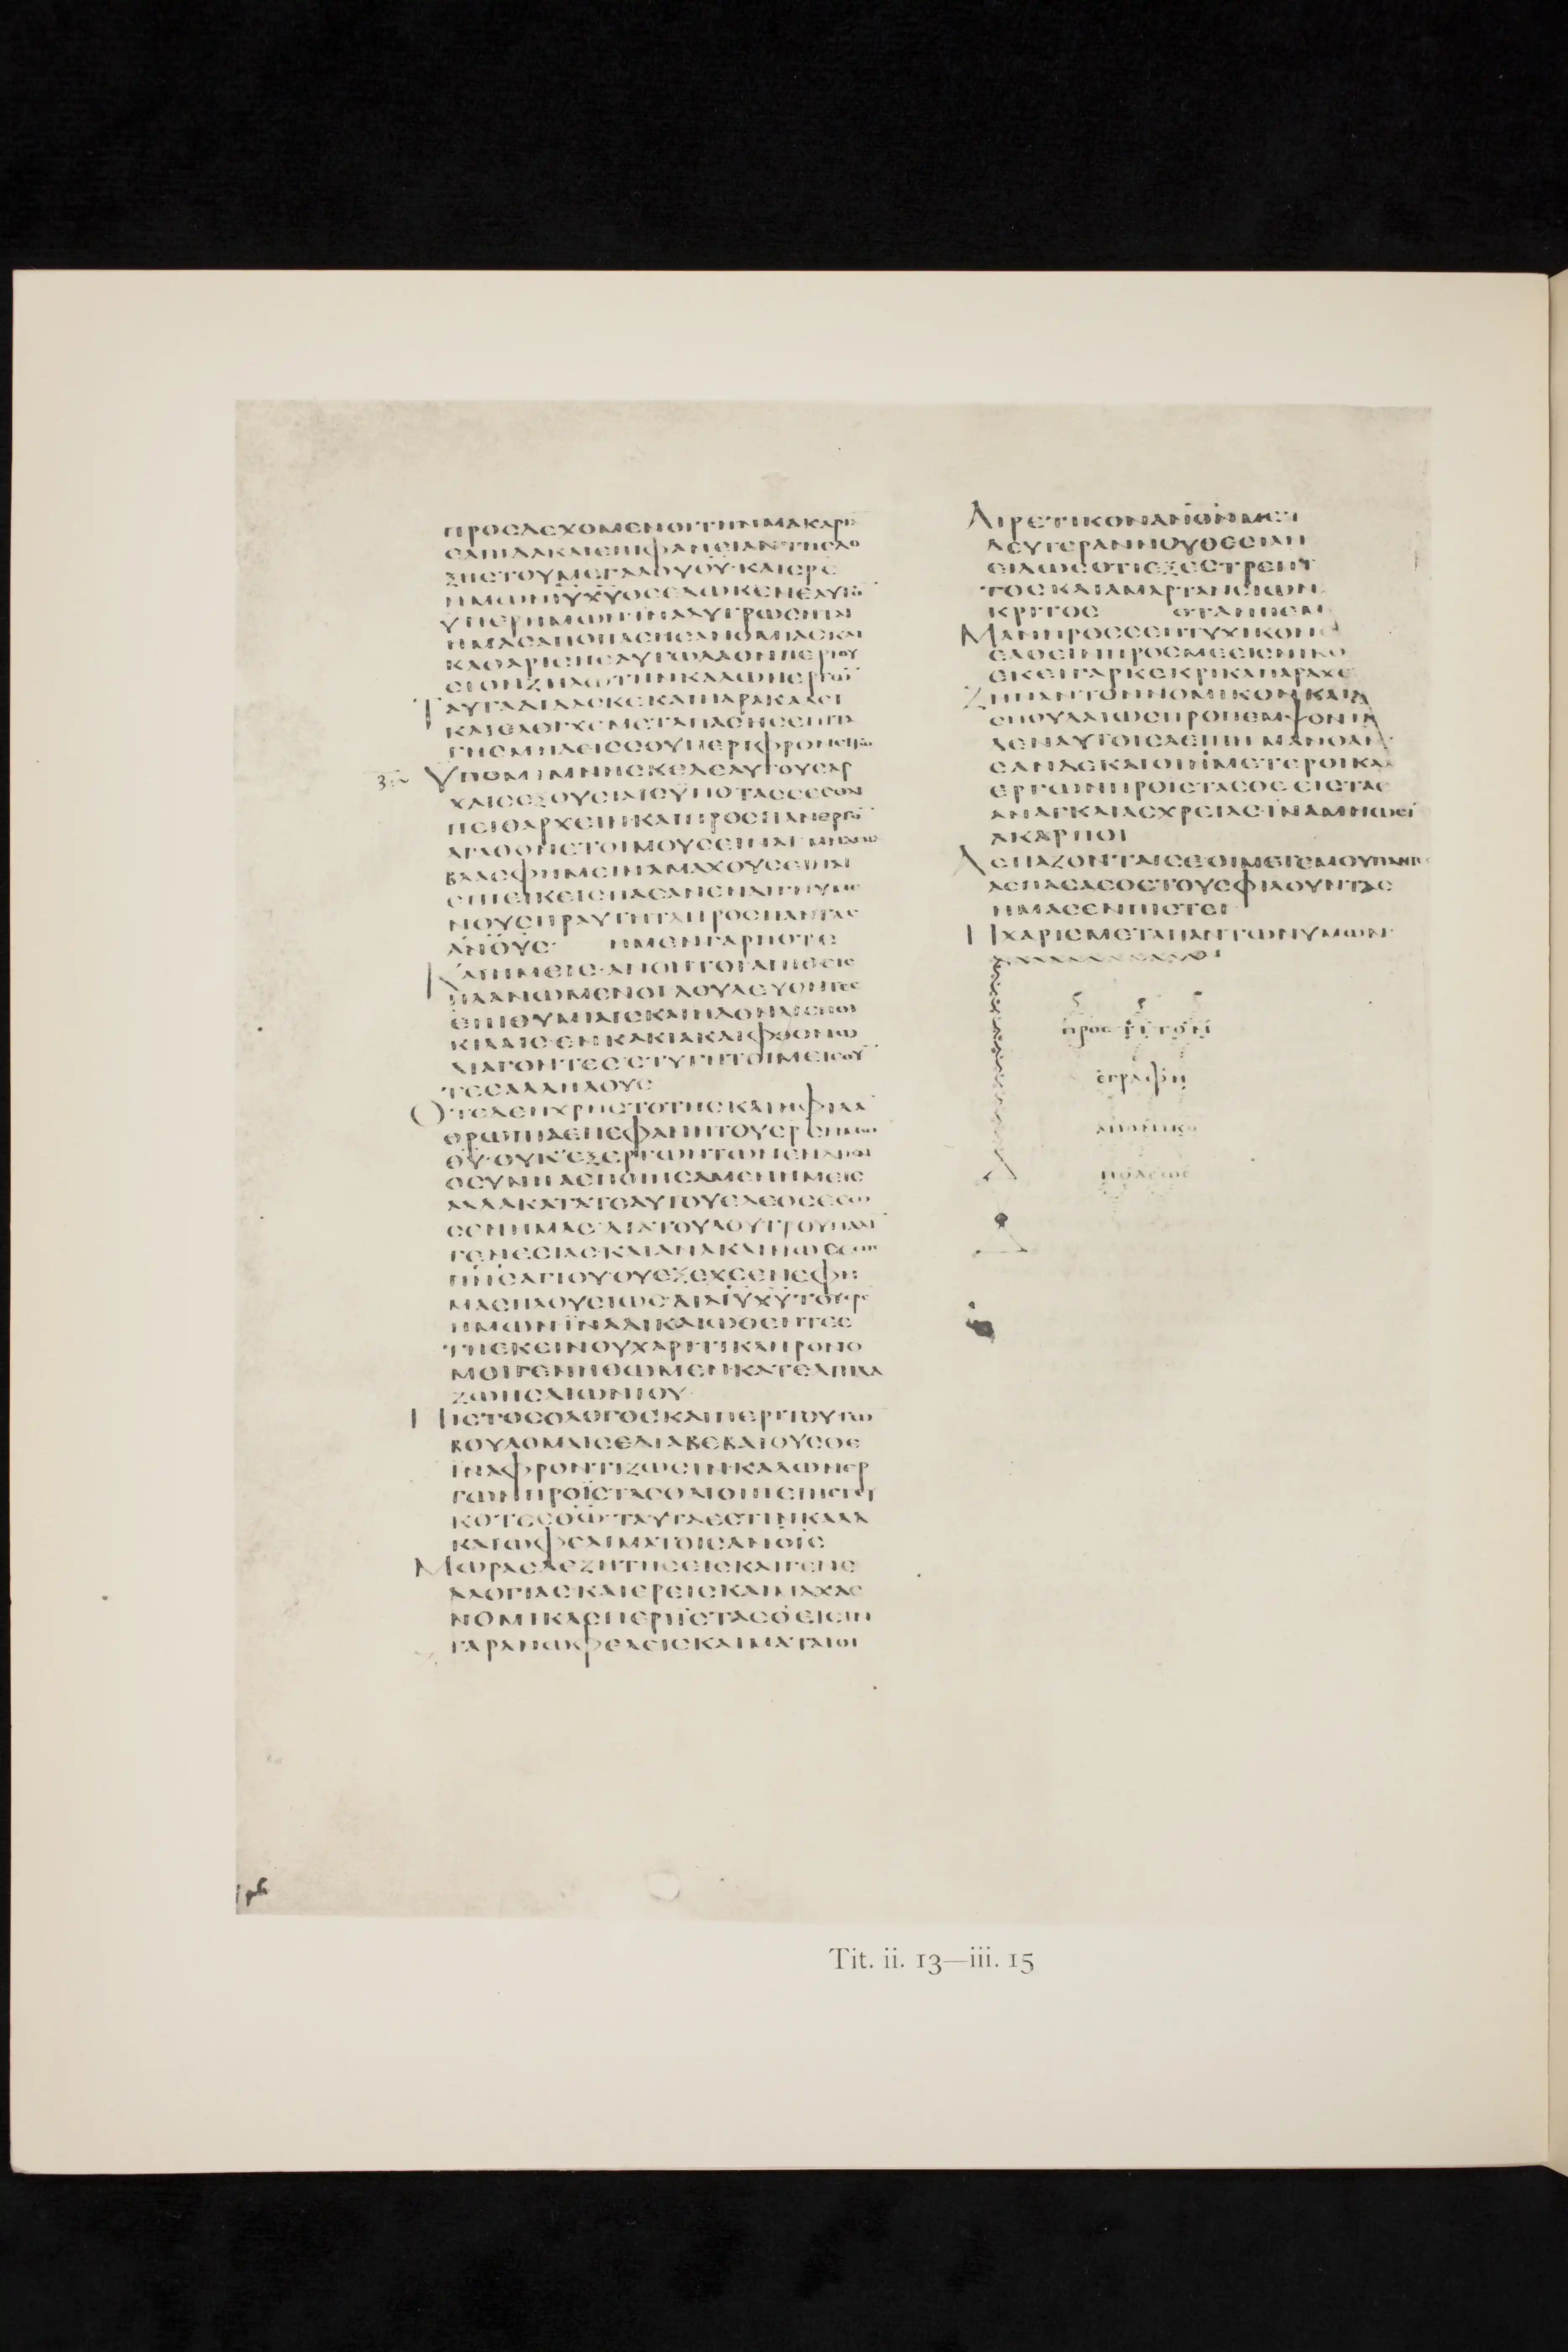 ΠΡΟϹΔΕΧΟΜΕΝΟΙΤΗΝΜΑΚΑΡΙ
ΕΛΠΙΔΑΚΑΙΕΠΙΦΑΝΕΙΑΝΤΗϹΔΟ
ΞΗϹΤΟΥΜΕΓΑΛΟΥΘΥ·ΚΑΙϹΡϹ
ΗΜΩΝΙΥΧΥΟϹΕΔΩΚΕΝΕΑΥΤΟ
ΥΠΕΡΗΜΩΝΙΝΑΛΥΤΡΩϹΗΤΑΙ
ΗΜΑϹΑΠΟΠΑϹΗϹΑΝΟΜΙΑϹΚΑΙ
ΚΑΘΑΡΙϹΗΕΑΥΤΩΛΑΟΝΠΕΡΙΟΥ
ϹΙΟΝΖΗΛΩΤΗΝΚΑΛΩΝΕΡΓΩ
ΤΑΥΤΑΔΙΔΑϹΚΕΚΑΙΠΑΡΑΚΑΛΕΙ
ΚΑΙΕΛΕΓΧΕΜΕΤΑΠΑϹΗϹΕΠΙΤΑ
ΓΗϹΜΗΔΕΙϹϹΟΥΠΕΡΙΦΡΟΝΕΙΤΩ
ΥΠΟΜΙΜΝΗϹΚΕΔΕΑΥΤΟΥϹΑΡ
ΧΑΙϹΕΞΟΥϹΙΑΙϹΫΠΟΤΑϹϹΕϹΘΑΙ
ΠΕΙΘΑΡΧΕΙΝΚΑΙΠΡΟϹΠΑΝΕΡΓΟ
ΑΓΑΘΟΝΕΤΟΙΜΟΥϹΕΙΝΑΙ·ΜΗΔΕΝΑ
ΒΛΑϹΦΗΜΕΙΝΑΜΑΧΟΥϹΕΙΝΑΙ
ΕΠΙΕΙΚΕΙϹΠΑϹΑΝΕΝΔΙΚΝΥΜΕ
ΝΟΥϹΠΡΑΥΤΗΤΑΠΡΟϹΠΑΝΤΑϹ
ΑΝΟΥϹ· ΗΜΕΝΓΑΡΠΟΤΕ
ΚΑΙΗΜΕΙϹ·ΑΝΟΗΤΟΙΑΠΙΘΕΙϹ
ΠΛΑΝΩΜΕΝΟΙΔΟΥΛΕΥΟΝΤΕϹ
ΕΠΙΘΥΜΙΑΙϹΚΑΙΗΔΟΝΑΙϹΠΟΙ
ΚΙΛΑΙϹ·ΕΝΚΑΚΙΑΚΑΙΦΘΟΝΩ
ΔΙΑΓΟΝΤΕϹϹΤΥΓΗΤΟΙΜΕΙϹΟΥ
ΤΕϹΑΛΛΗΛΟΥϹ
ΟΤΕΔΕΗΧΡΗϹΤΟΤΗϹΚΑΙΗΦΙΛΑ
ΘΡΩΠΙΑΕΠΕΦΑΝΗΤΟΥϹΡϹΗΜΩΝ
ΘΥ·ΟΥΚΕΞΕΡΓΩΝΤΩΝΕΝΔΙΚΑΙ
ΟϹΥΝΗΑΕΠΟΙΗϹΑΜΕΝΗΜΕΙϹ
ΑΛΛΑΚΑΤΑΤΟΑΥΤΟΥΕΛΕΟϹΕϹΩ
ϹΕΝΗΜΑϹ·ΔΙΑΤΟΥΛΟΥΤΡΟΥΠΑΛΙ
ΓΕΝΕϹΙΑϹΚΑΙΑΝΑΚΑΙΝΩϹΕΩϹ
ΠΝϹΑΓΙΟΥ·ΟΥΕΞΕΧΕΕΝΕΦΗ
ΜΑϹΠΛΟΥϹΙΩϹ·ΔΙΑΙΥΧΥΤΟΥϹΡϹ
ΗΜΩΝΪΝΑΔΙΚΑΙΩΘΕΝΤΕϹ
ΤΗΕΚΕΙΝΟΥΧΑΡΙΤΙΚΛΗΡΟΝΟ
ΜΟΙΓΕΝΗΘΩΜΕΝ·ΚΑΤΕΛΠΙΔΑ
ΖΩΗϹΑΙΩΝΙΟΥ·
ΠΙϹΤΟϹΟΛΟΓΟϹΚΑΙΠΕΡΙΤΟΥΤΩ
ΒΟΥΛΟΜΑΙϹΕΔΙΑΒΕΒΑΙΟΥϹΘΕ
ΪΝΑΦΡΟΝΤΙΖΩϹΙΝΚΑΛΩΝΕΡ
ΓΩΝΠΡΟΪϹΤΑϹΘΑΙΟΙΠΕΠΙϹΤΕΥ
ΚΟΤΕϹΘΩ·ΤΑΥΤΑΕϹΤΙΝΚΑΛΑ
ΚΑΙΩΦΕΛΙΜΑΤΟΙϹΑΝΟΙϹ
ΜΩΡΑϹΔΕΖΗΤΗϹΕΙϹΚΑΙΓΕΝΕ
ΑΛΟΓΙΑϹ·ΚΑΙΕΡΕΙϹΚΑΙΜΑΧΑϹ
ΝΟΜΙΚΑϹΠΕΡΙΪϹΤΑϹΟ·ΕΙϹΙΝ
ΓΑΡΑΝΩΦΕΛΕΙϹΚΑΙΜΑΤΑΙΟΙ
ΑΙΡΕΤΙΚΟΝΑΝΟΝΜΕΤΑ
ΔΕΥΤΕΡΑΝΝΟΥΘΕϹΙΑΝ
ΕΙΔΩϹΟΤΙΕΞΕϹΤΡΕΠΤ
ΤΟϹΚΑΙΑΜΑΡΤΑΝΕΙΩΝ
ΚΡΙΤΟϹ ΟΤΑΝΠΕΜ
ΜΑΝΠΡΟϹϹΕΗΤΥΧΙΚΟΝϹ
ΕΛΘΕΙΝΠΡΟϹΜΕΕΙϹΝΙΚΟ
ΕΚΕΙΓΑΡΚΕΚΡΙΚΑΠΑΡΑΧΕ
ΖΗΝΑΝΤΟΝΝΟΜΙΚΟΝΚΑΙΑ
ϹΠΟΥΔΑΙΩϹΠΡΟΠΕΜΨΟΝΙΝ
ΔΕΝΑΥΤΟΙϹΛΕΙΠΗ ΜΑΝΘΑΝ
ΕϹΑΝΔΕΚΑΙΟΙΗΜΕΤΕΡΟΙΚΑ
ΕΡΓΩΝΠΡΟΙϹΤΑϹΘϹΕΙϹΤΑϹ
ΑΝΑΓΚΑΙΑϹΧΡΕΙΑϹ·ΙΝΑΜΗΩϹΙ
ΑΚΑΡΠΟΙ
ΑϹΠΑΖΟΝΤΑΙϹΕΟΙΜΕΤΕΜΟΥΠΑΝΤΕ
ΑϹΠΑϹΑϹΘΕΤΟΥϹΦΙΛΟΥΝΤΑϹ
ΗΜΑϹΕΝΠΙϹΤΕΙ
ΗΧΑΡΙϹΜΕΤΑΠΑΝΤΩΝΥΜΩΝ
ΠΡΟϹ ΤΙΤΟΝ
ΕΓΡΑΦΗ
ΑΠΟΝΙΚΟ
ΠΟΛΕΩϹ
Tit. ii. 13—iii. 15